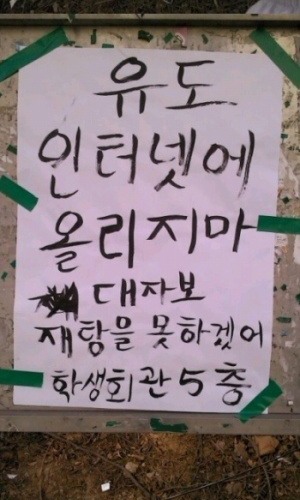 유도
인터넷에
올리지마
대자보
재탕을 못하겠어
학생회관 5층